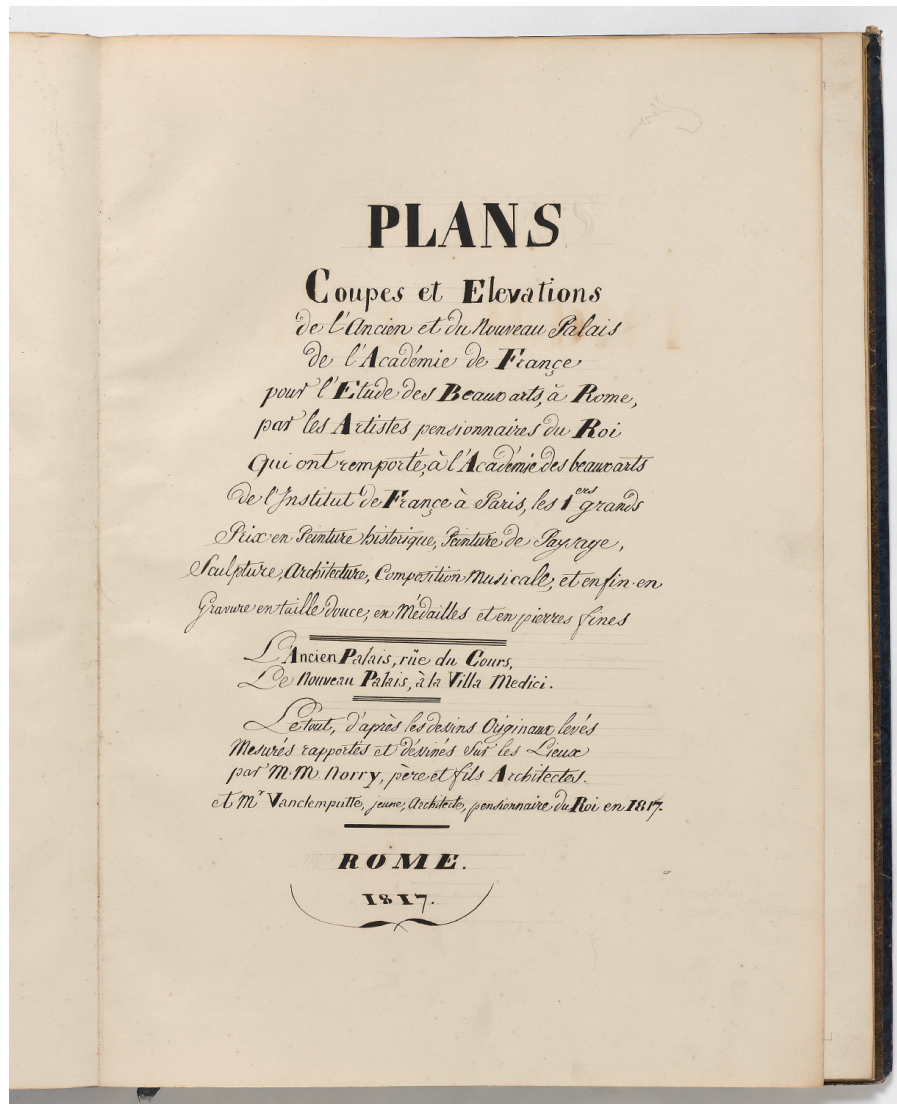 PLANS
Coupes et Elevations
de l'Ancien et du Nouveau Palais
de l'Académie de Françe
pour l'Etude des Beaux arts, à Rome,
par les Artistes pensionnaires du Roi
qui ont remporté, à l'Académie des beaux arts
de l'Institut de Françe à Paris, les 1ers grands
Prix en Peinture historique, Peinture de Paysage,
Sculpture, Architecture, Composition Musicale, et enfin en
Gravure en taille douce, en Médailles et en pierres fines
L'Ancien Palais, rüe du Cours,
Le Nouveau Palais, à la Villa Medici.
Le tout, d'après les dessins Originaux levés
Mesurés rapportés et déssinés sur les Lieux
par M.M. Norry, père et fils Architectes.
et Mr Vanclemputte, jeune, Architecte, pensionnaire du Roi en 1817.
ROME.
1817.